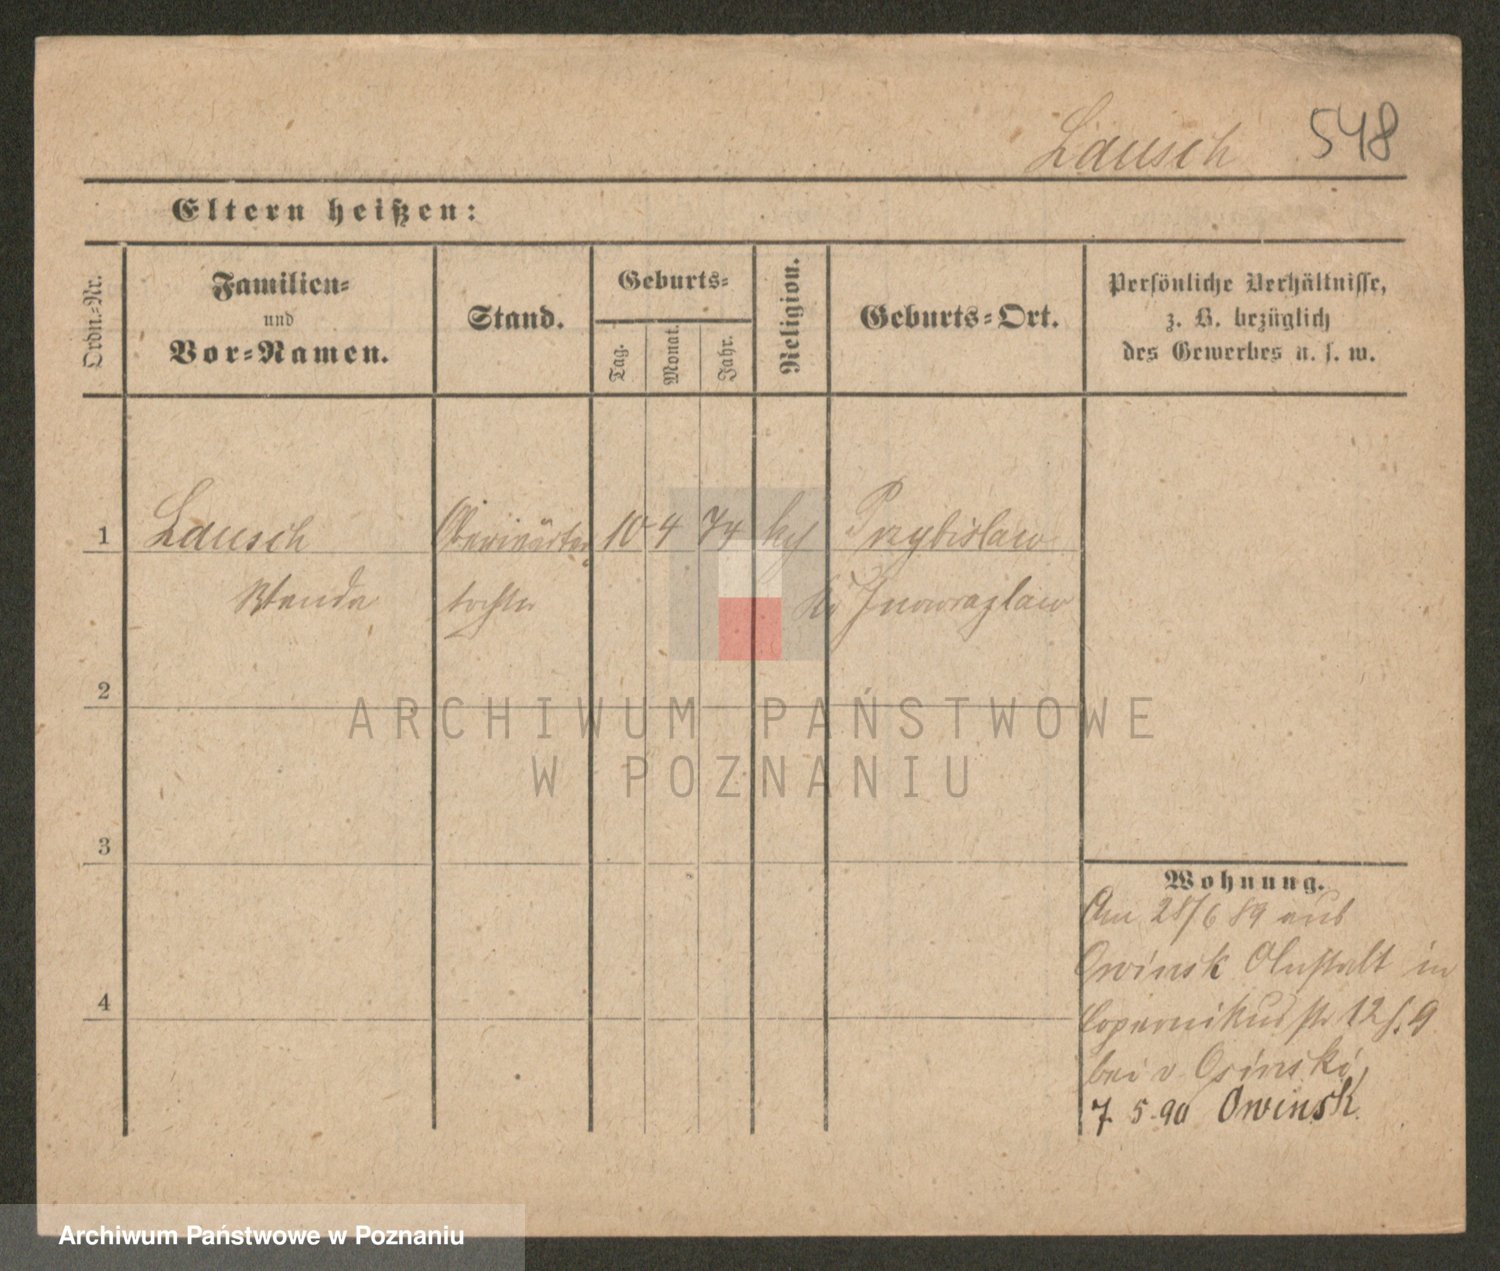 Lausch 548
Eltern heißen:
Ordn.-Nr.
Familien-
und
Vor-Namen.
Stand.
Geburts-
Tag.
Monat.
Jahr.
Religion.
Geburts-Ort.
Persönliche Verhältnisse,
z. B. bezüglich
des Gewerbes u. s. w.
1 Lausch Oberwärter 10 4 74 Przybislaw
Wanda tochter Inowrazlaw
2
3
4
Wohnung.
Am 28/6 89 aus
Owinsk Anstalt in
Copernikus str 12 b. 9
bei v Osinski
7. 5. 90 Owinsk
ARCHIWUM PAŃSTWOWE
W POZNANIU
Archiwum Państwowe w Poznaniu